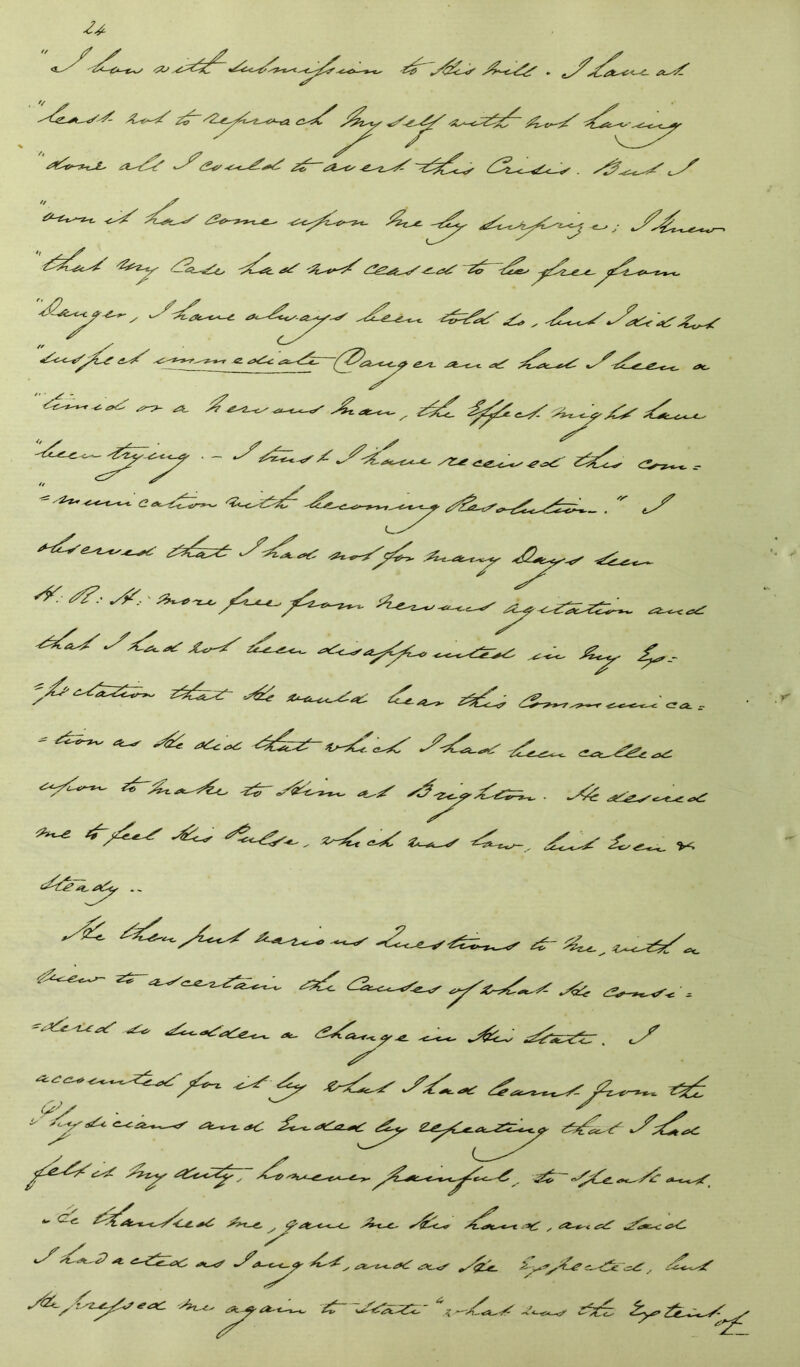 24
"I bow with submission to His Will. I have at
"least not to reproach Myself with not having
"done all I could to avert this Crisis. But I
"own it has come upon Me by surprize; I knew
"that My Case had not ceased to be free from
"Danger, I have always been told so, but I did not
"suspect immediate Danger and had I been a
"timid or a nervous Man, the Effect might have
"been trying. - I trust I have received this Com=
"=munication with becoming Resolution." I
observed that I had not for many Days seen
H: R: H: more free from nervous agitation and
that I had not been disappointed in my Ex=
=pectation that He would bear this Communica=
=tion as He did that which I had been called
upon to make to Him at Brighton. He desired
me to feel His Pulse, which was low, but Even &
Steady..
He then put various Questions to Me, with a
View to ascertain the Causes of what He consi=
=dered so sudden a Change in His State. I
accounted for it by what I had learnt from the
Physicians and Ended by repeating that I had
felt it my duty, however painful, to speak out.
He thanked me, gave me His hand, and said
I had acted as I ought, and as He Expected, but
He pressed me again to State "what was the Extent of